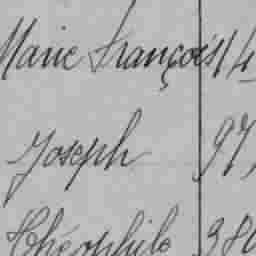 Marie François 14
Joseph 97,
Théophile 380